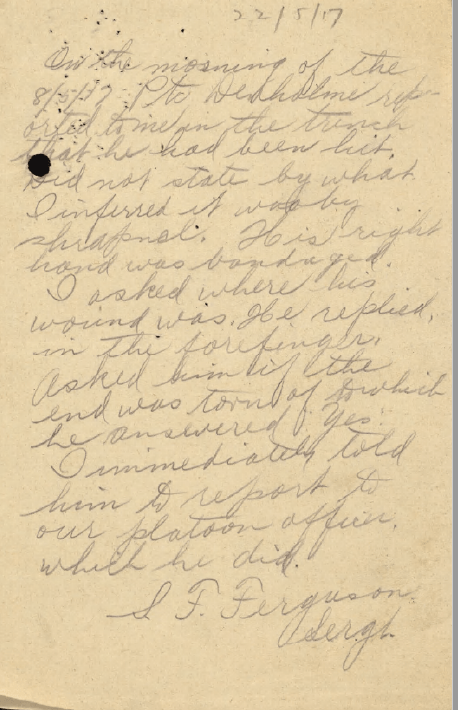 22/5/17
On the morning of the
8/5/17 Pte Denholme rep-
orted to me in the trench
that he had been hit.
Did not state by what
I inferred it was by
shrapnel. His right
hand was bandaged.
I asked where his
wound was. He replied,
in the forefinger.
Asked him if the
end was torn of to which
he answered Yes.
I immediately told
him to report to
our platoon officer,
which he did.
S. F. Ferguson
Sergt.